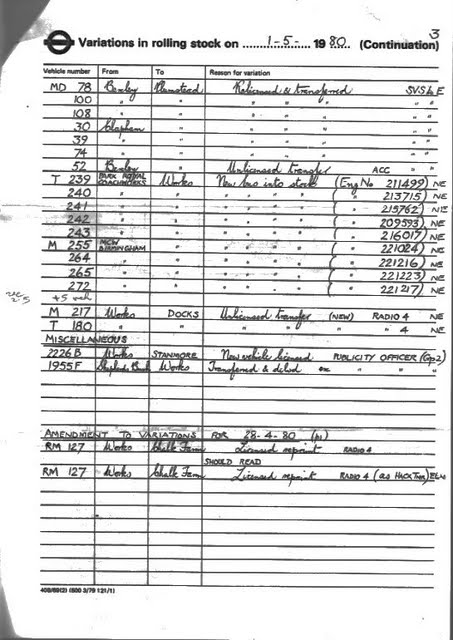 3
Variations in rolling stock on 1-5- 1980 (Continuation)
Vehicle number From To Reason for variation
MD 78 Bexley Plumstead Relicensed & transferred SVS L E
100 " " " " " "
108 " " " " " "
30 Clapham " " " " "
39 " " " " " "
74 " " " " " "
52 Bexley " Unlicensed transfer ACC " "
T 239 PARK ROYAL COACHWORKS Works New bus into stock (Eng No 211499) NE
240 " " " " " " ( " 213715) NE
241 " " " " " " ( " 215762) NE
242 " " " " " " ( " 209593) NE
243 " " " " " " ( " 216017) NE
M 255 MCW BIRMINGHAM " " " " " ( " 221024) NE
264 " " " " " " ( " 221216) NE
265 " " " " " " ( " 221223) NE
272 " " " " " " ( " 221217) NE
rec 2.5
+5 veh
M 217 Works DOCKS Unlicensed transfer (NEW) RADIO 4 NE
T 180 " " " " " " 4 NE
MISCELLANEOUS
2226B Works STANMORE New vehicle licensed PUBLICITY OFFICER (Gp2)
1955F Shepherds Bush Works Transferred & delvd ex " " "
AMENDMENT TO VARIATIONS FOR 28-4-80 (p1)
RM 127 Works Chalk Farm Licensed repaint RADIO 4
SHOULD READ
RM 127 Works Chalk Farm Licensed repaint RADIO 4 (as HACKTHER)
408/69(2) (500 3/79 121/1)